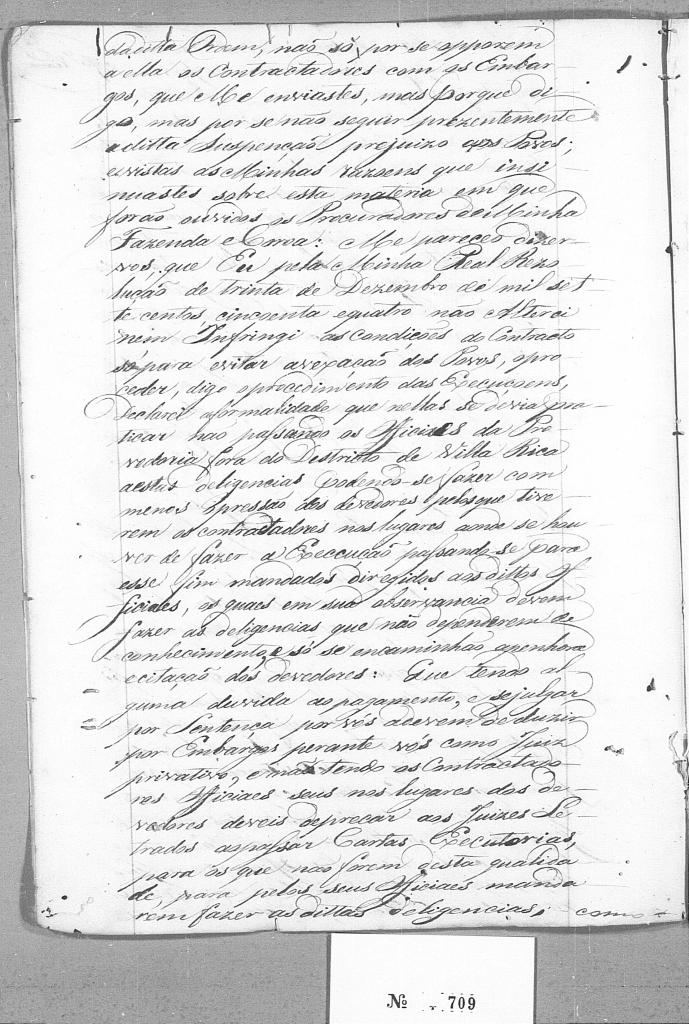 da ditta Ordem, não só por se opporem
a ella os Contractadores com os Embar-
gos, que Me enviastes, mas porque di-
go, mas por se não seguir prezentemente
a ditta Suspenção prejuizo aos Povos;
e vistas as Minhas razoens que insi-
nuastes sobre esta materia em que
forão ouvidos os Procuradores de Minha
Fazenda e Coroa: Me pareceo dizer-
vos, que Eu pela Minha Real Rezo-
lução de trinta de Dezembro de mil set
te centos cincoenta e quatro não Alterei
nem Infringi as Condições do Contracto
só para evitar a vexação dos Povos, o pro-
ceder, digo o procedimento das Execuçoens,
Declarei a formalidade que nellas se devia pra-
ticar não passando os Officiaes da Pro-
vedoria fora do Districto de Villa Rica
a estas deligencias podendo-se fazer com
menos opressão dos devedores pelos que tive-
rem os contractadores nos lugares aonde se hou-
ver de fazer a Execcução passando-se para
esse fim mandados diregidos aos dittos Of-
ficiaes, os quaes em sua observancia devem
fazer as deligencias que não dependerem de
conhecimento, e só se encaminhão a penhora
e citação dos devedores: Que tendo al-
guma duvida ao pagamento, e se julgar
por Sentença por vós a devem deduzir
por Embargos perante vós como Juiz
privativo, e não tendo os Contractado-
res Officiaes seus nos lugares dos de-
vedores deveis deprecar aos Juizes Le-
trados a passar Cartas Executorias,
para os que não forem desta qualida
de, para pelos seus Officiaes manda
rem fazer as dittas deligencias; como
Nº 709